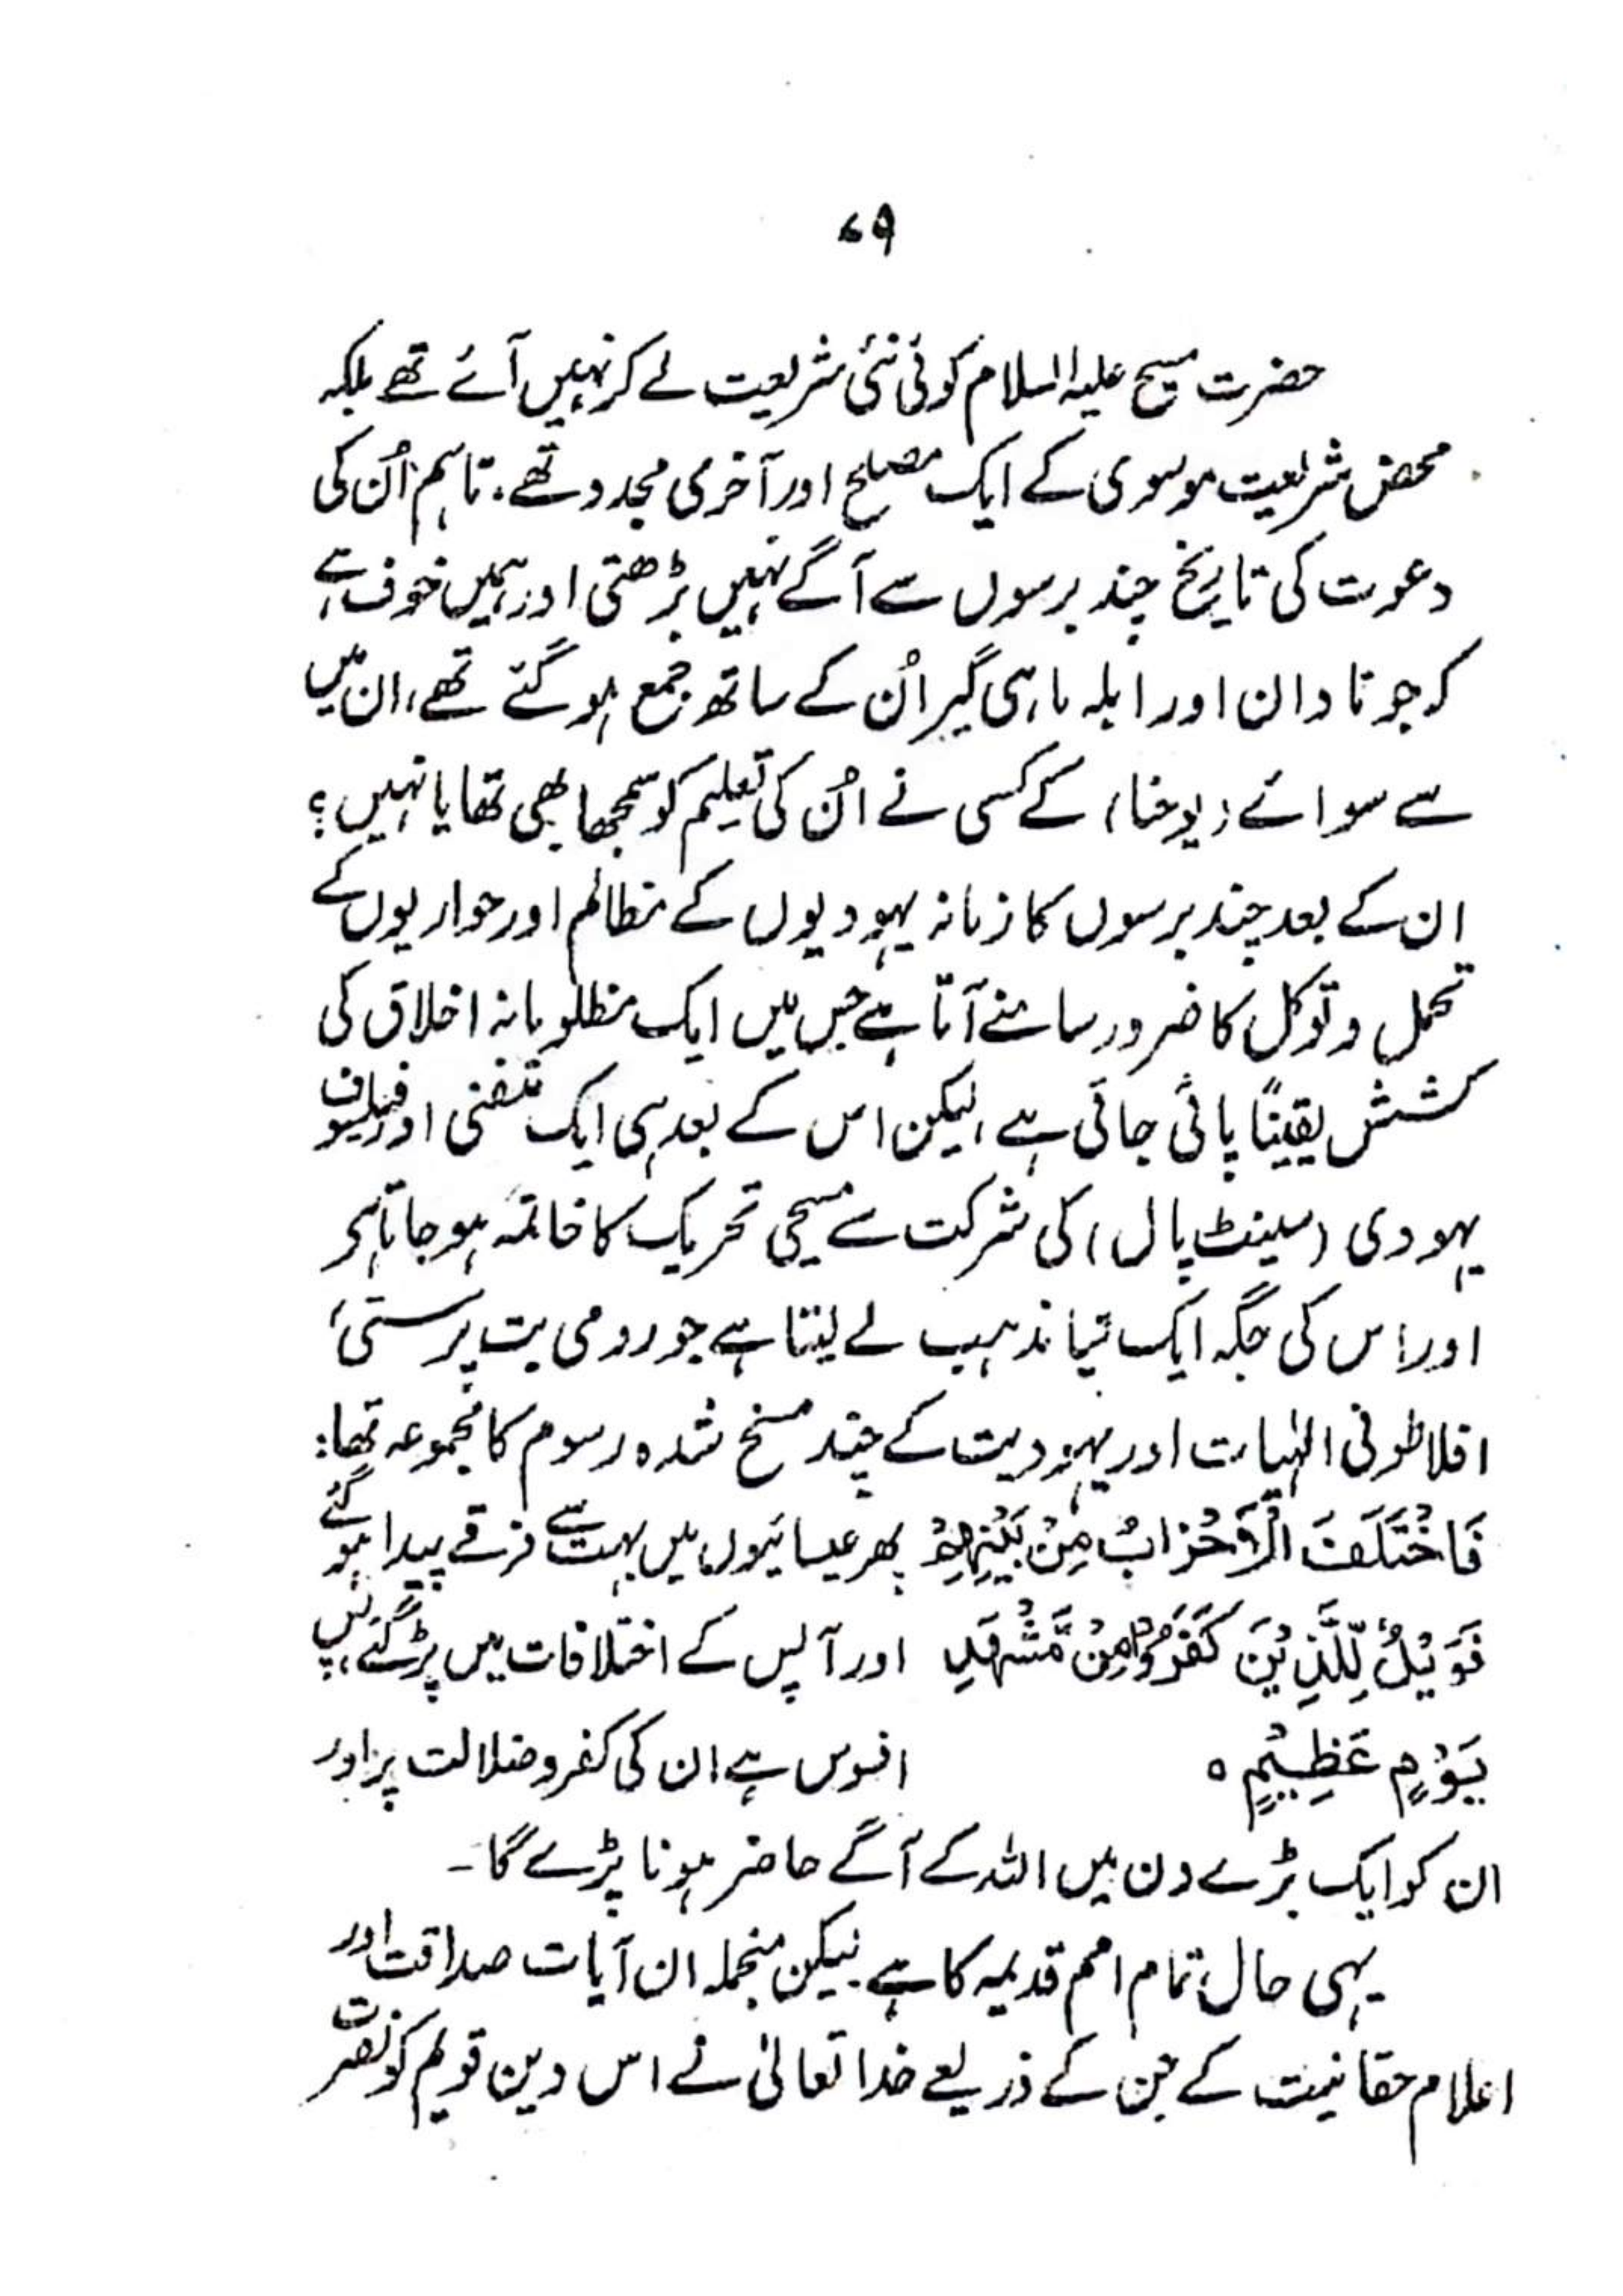 ۷۹
حضرت مسیح علیہ السلام کوئی نئی شریعت لے کر نہیں آئے تھے بلکہ
محض شریعت موسوی کے ایک مصلح اور آخری مجدد تھے. تاہم اُن کی
دعوت کی تاریخ چند برسوں سے آگے نہیں بڑھتی اور ہمیں خوف ہے
کہ جو نادان اور ابلہ ماہی گیر اُن کے ساتھ جمع ہو گئے تھے، ان میں
سے سوائے (یوحنا) کے کسی نے اُن کی تعلیم کو سمجھا بھی تھا یا نہیں؟
ان کے بعد چند برسوں کا زمانہ یہودیوں کے مظالم اور حواریوں کے
تحمل و توکل کا ضرور سامنے آتا ہے جس میں ایک مظلومانہ اخلاق کی
کشش یقیناً پائی جاتی ہے، لیکن اس کے بعد ہی ایک متفنی اور فیلسوف
یہودی (سینٹ پال) کی شرکت سے مسیحی تحریک کا خاتمہ ہو جاتا ہے
اور اس کی جگہ ایک نیا مذہب لے لیتا ہے جو رومی بت پرستی،
افلاطونی الٰہیات اور یہودیت کے چند مسخ شدہ رسوم کا مجموعہ تھا:
فَاخْتَلَفَ الْاَحْزَابُ مِنْ بَیْنِہِمْ پھر عیسائیوں میں بہت سے فرقے پیدا ہو گئے
فَوَیْلٌ لِّلَّذِیْنَ کَفَرُوْا مِنْ مَّشْہَدِ اور آپس کے اختلافات میں پڑ گئے، پس
یَوْمٍ عَظِیْمٍ ہ افسوس ہے ان کی کفر و ضلالت پر اور
ان کو ایک بڑے دن میں اللہ کے آگے حاضر ہونا پڑے گا۔
یہی حال تمام امم قدیمہ کا ہے لیکن منجملہ ان آیات صداقت اور
اعلام حقانیت کے جن کے ذریعے خدا تعالیٰ نے اس دین قویم کو نصرت